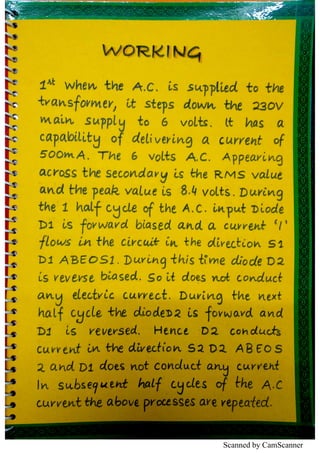 WORKING
1st When the A.C. is supplied to the
transformer, it steps down the 230V
main supply to 6 volts. It has a
capability of delivering a current of
500mA. The 6 volts A.C. Appearing
across the secondary is the RMS value
and the peak value is 8.4 volts. During
the 1 half cycle of the A.C. input Diode
D1 is forward biased and a current 'I'
flows in the circuit in the direction S1
D1 ABEOS1. During this time diode D2
is reverse biased. So it does not conduct
any electric currect. During the next
half cycle the diodeD2 is forward and
D1 is reversed. Hence D2 conducts
current in the direction S2 D2 ABEOS
2 and D1 does not conduct any current
In subsequent half cycles of the A.C
current the above processes are repeated.
Scanned by CamScanner